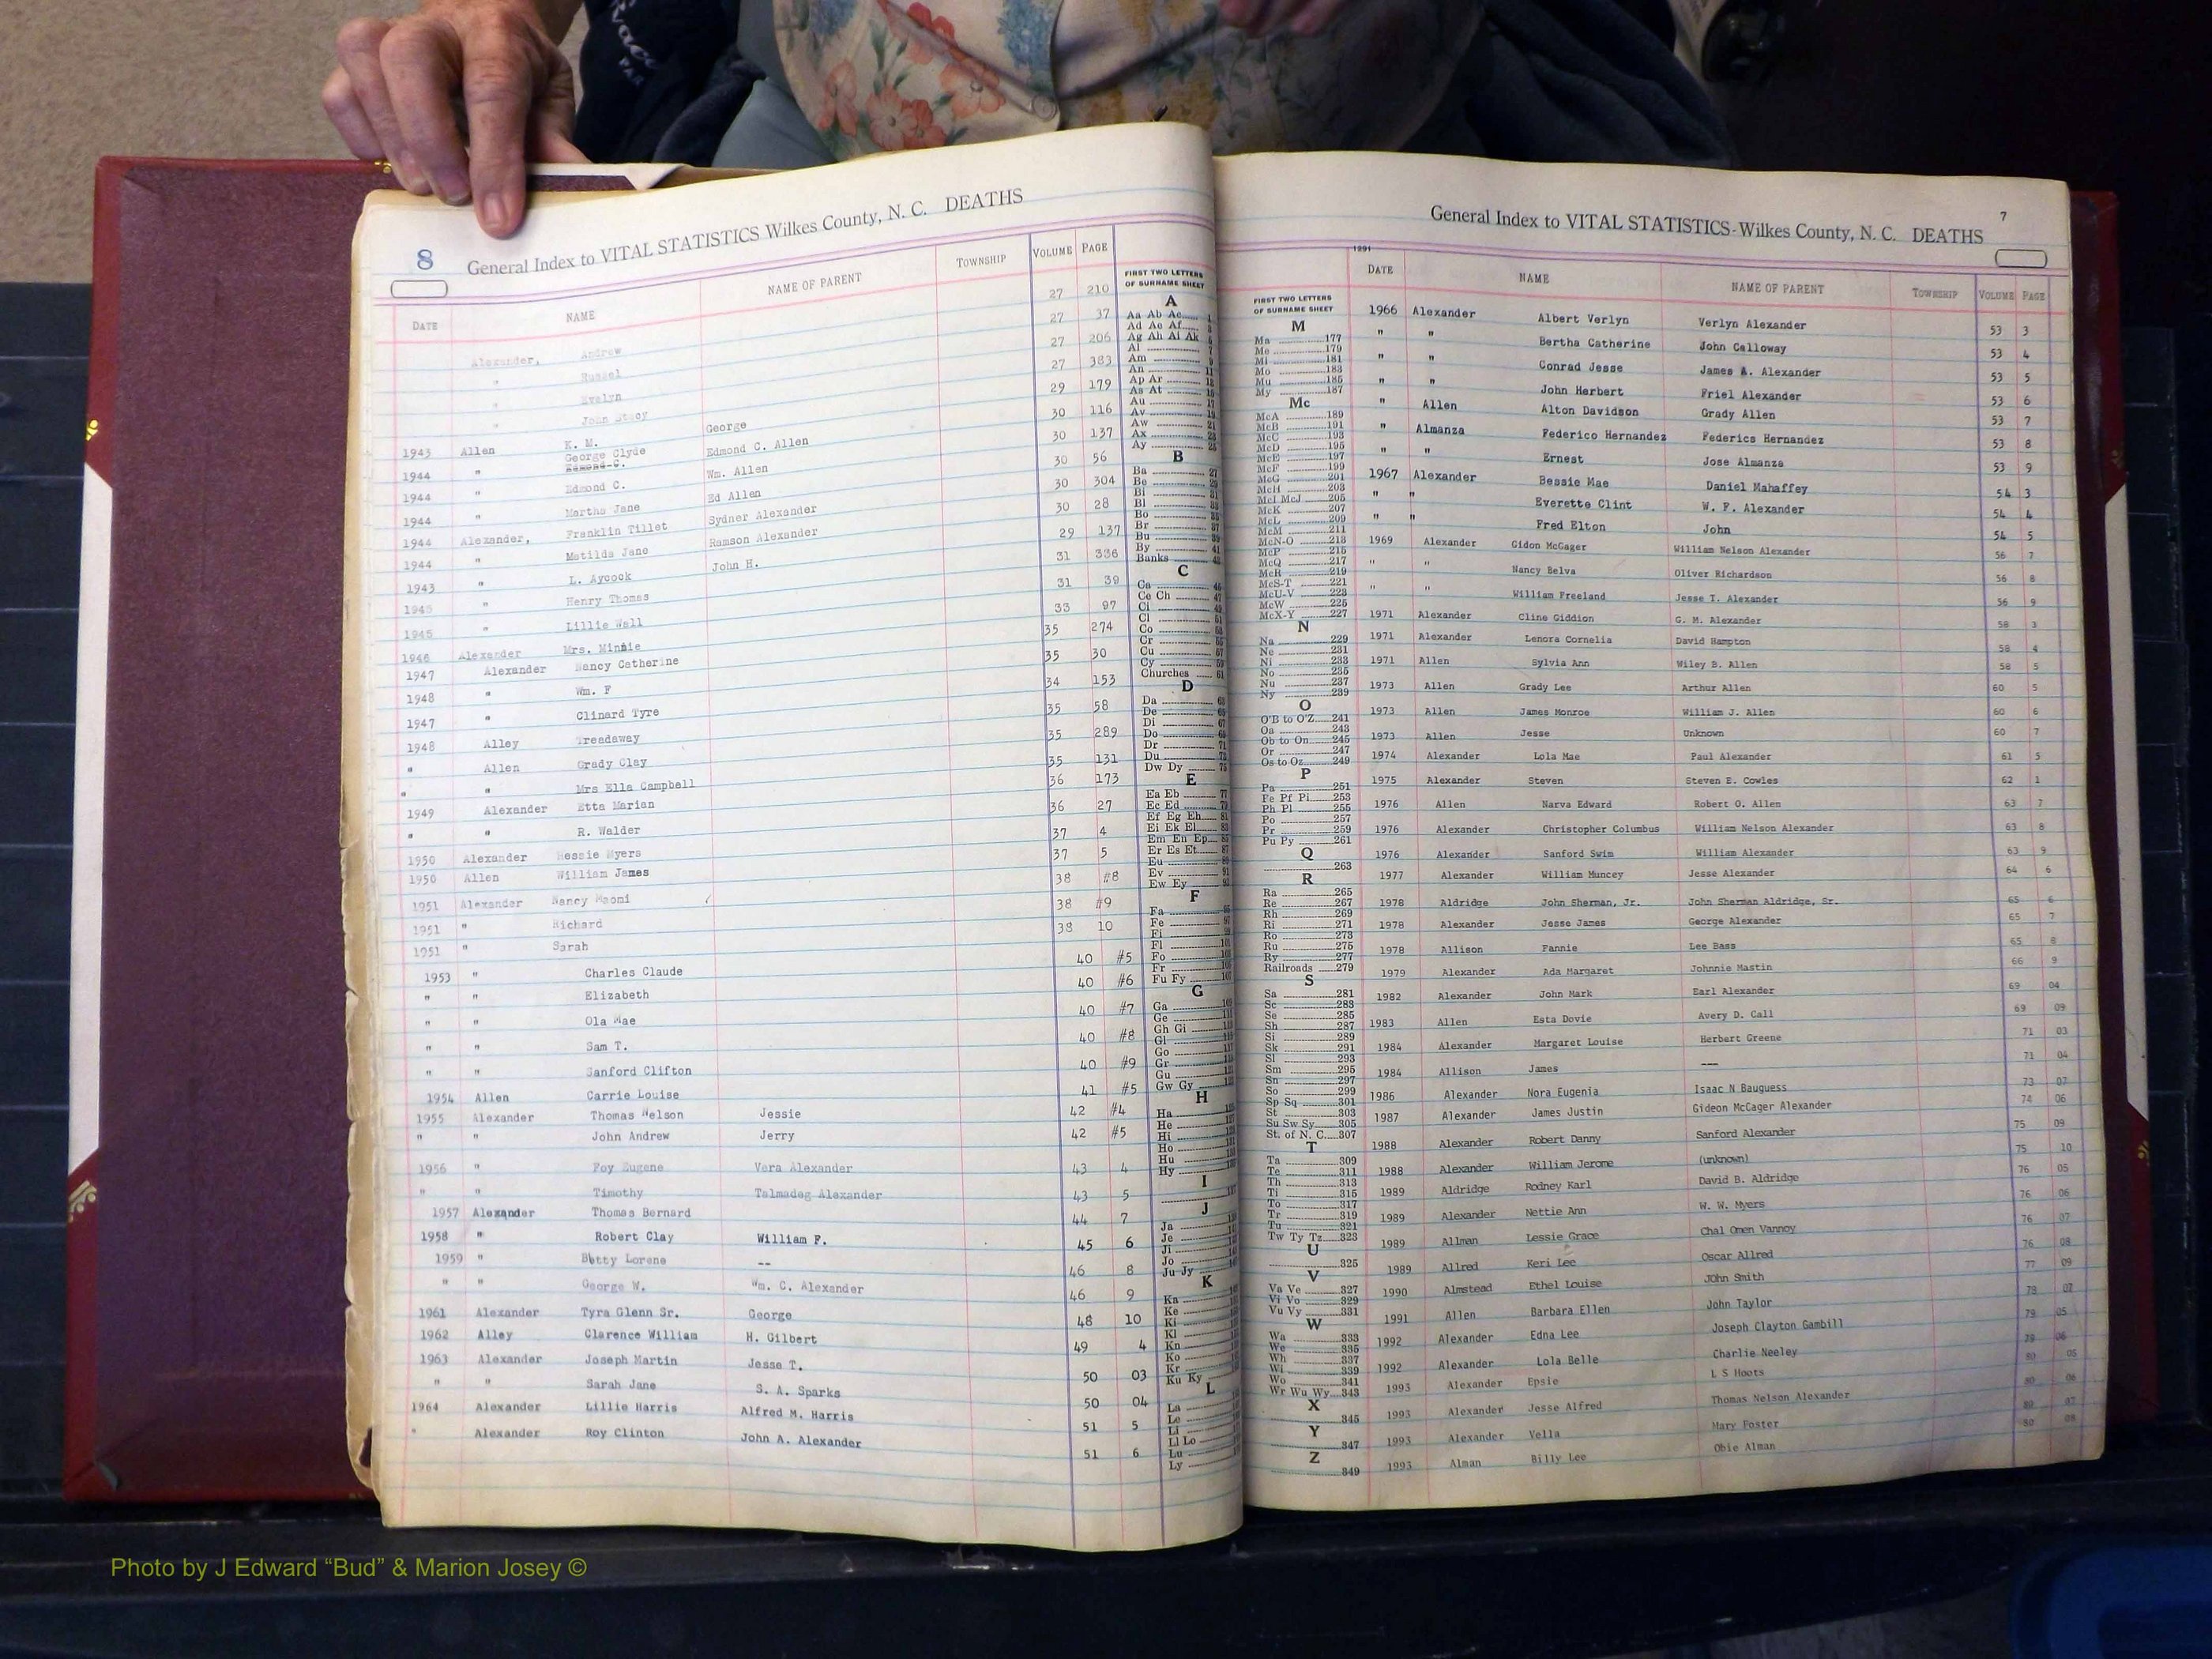 8 General Index to VITAL STATISTICS Wilkes County, N. C. DEATHS
DATE NAME NAME OF PARENT TOWNSHIP VOLUME PAGE
Alexander, Andrew 27 210
" Russel 27 37
" Evelyn 27 206
" John Stacy 27 383
1943 Allen K. M. George 29 179
1944 " George Clyde Edmond C. Allen 30 116
Edmond C.
1944 " Edmond C. Wm. Allen 30 137
1944 " Martha Jane Ed Allen 30 56
1944 Alexander, Franklin Tillet Sydner Alexander 30 304
1944 " Matilda Jane Ramson Alexander 30 28
1943 " L. Aycock John H. 29 137
1945 " Henry Thomas 31 336
1945 " Lillie Wall 31 39
1946 Alexander Mrs. Minnie 33 97
1947 Alexander Nancy Catherine 35 274
1948 " Wm. F 35 30
1947 " Clinard Tyre 34 153
1948 Alley Treadaway 35 58
" Allen Grady Clay 35 289
" " Mrs Ella Campbell 35 131
1949 Alexander Etta Marian 36 173
" " R. Walder 36 27
1950 Alexander Bessie Myers 37 4
1950 Allen William James 37 5
1951 Alexander Nancy Naomi 38 #8
1951 " Richard 38 #9
1951 " Sarah 38 10
1953 " Charles Claude 40 #5
" " Elizabeth 40 #6
" " Ola Mae 40 #7
" " Sam T. 40 #8
" " Sanford Clifton 40 #9
1954 Allen Carrie Louise 41 #5
1955 Alexander Thomas Nelson Jessie 42 #4
" " John Andrew Jerry 42 #5
1956 " Foy Eugene Vera Alexander 43 4
" " Timothy Talmadeg Alexander 43 5
1957 Alexander Thomas Bernard 44 7
1958 " Robert Clay William F. 45 6
1959 " Betty Lorene -- 46 8
" " George W. Wm. C. Alexander 46 9
1961 Alexander Tyra Glenn Sr. George 48 10
1962 Alley Clarence William H. Gilbert 49 4
1963 Alexander Joseph Martin Jesse T. 50 03
" " Sarah Jane S. A. Sparks 50 04
1964 Alexander Lillie Harris Alfred M. Harris 51 5
" Alexander Roy Clinton John A. Alexander 51 6
FIRST TWO LETTERS
OF SURNAME SHEET
A
Aa Ab Ac
Ad Ae Af
Ag Ah Ai Ak
Al
Am
An
Ap Ar
As At
Au
Av
Aw
Ax
Ay
B
Ba
Be
Bi
Bl
Bo
Br
Bu
By
Banks
C
Ca
Ce Ch
Ci
Co
Cr
Cu
Cy
Churches
D
Da
De
Di
Do
Dr
Du
Dw Dy
E
Ea Eb
Ec Ed
Ef Eg Eh
Ei Ek El
Em En Ep
Er Es Et
Eu
Ev
Ew Ey
F
Fa
Fe
Fi
Fl
Fo
Fr
Fu Fy
G
Ga
Ge
Gh Gi
Gl
Go
Gr
Gu
Gw Gy
H
Ha
He
Hi
Ho
Hu
Hy
I
J
Ja
Je
Ji
Jo
Ju Jy
K
Ka
Ke
Ki
Kl
Kn
Ko
Kr
Ku Ky
L
La
Le
Li
Ll Lo
Lu
Ly
General Index to VITAL STATISTICS-Wilkes County, N. C. DEATHS 7
1291
FIRST TWO LETTERS
OF SURNAME SHEET
M
Ma 177
Me 179
Mi 181
Mo 183
Mu 185
My 187
Mc
McA 189
McB 191
McC 193
McD 195
McE 197
McF 199
McG 201
McH 203
McI McJ 205
McK 207
McL 209
McM 211
McN-O 213
McP 215
McQ 217
McR 219
McS-T 221
McU-V 223
McW 225
McX-Y 227
N
Na 229
Ne 231
Ni 233
No 235
Nu 237
Ny 239
O
O'B to O'Z 241
Oa 243
Ob to On 245
Or 247
Os to Oz 249
P
Pa 251
Pe Pf Pi 253
Ph Pl 255
Po 257
Pr 259
Pu Py 261
Q
263
R
Ra 265
Re 267
Rh 269
Ri 271
Ro 273
Ru 275
Ry 277
Railroads 279
S
Sa 281
Sc 283
Se 285
Sh 287
Si 289
Sk 291
Sl 293
Sm 295
Sn 297
So 299
Sp Sq 301
St 303
Su Sw Sy 305
St. of N. C. 307
T
Ta 309
Te 311
Th 313
Ti 315
To 317
Tr 319
Tu 321
Tw Ty Tz 323
U
325
V
Va Ve 327
Vi Vo 329
Vu Vy 331
W
Wa 333
We 335
Wh 337
Wi 339
Wo 341
Wr Wu Wy 343
X
345
Y
347
Z
349
DATE NAME NAME OF PARENT TOWNSHIP VOLUME PAGE
1966 Alexander Albert Verlyn Verlyn Alexander 53 3
" " Bertha Catherine John Calloway 53 4
" " Conrad Jesse James A. Alexander 53 5
" " John Herbert Friel Alexander 53 6
" Allen Alton Davidson Grady Allen 53 7
" Almanza Federico Hernandez Federics Hernandez 53 8
" " Ernest Jose Almanza 53 9
1967 Alexander Bessie Mae Daniel Mahaffey 54 3
" " Everette Clint W. F. Alexander 54 4
" " Fred Elton John 54 5
1969 Alexander Gidon McGager William Nelson Alexander 56 7
" " Nancy Belva Oliver Richardson 56 8
" " William Freeland Jesse T. Alexander 56 9
1971 Alexander Cline Giddion G. M. Alexander 58 3
1971 Alexander Lenora Cornelia David Hampton 58 4
1971 Allen Sylvia Ann Wiley B. Allen 58 5
1973 Allen Grady Lee Arthur Allen 60 5
1973 Allen James Monroe William J. Allen 60 6
1973 Allen Jesse Unknown 60 7
1974 Alexander Lola Mae Paul Alexander 61 5
1975 Alexander Steven Steven E. Cowles 62 1
1976 Allen Narva Edward Robert O. Allen 63 7
1976 Alexander Christopher Columbus William Nelson Alexander 63 8
1976 Alexander Sanford Swim William Alexander 63 9
1977 Alexander William Muncey Jesse Alexander 64 6
1978 Aldridge John Sherman, Jr. John Sherman Aldridge, Sr. 65 6
1978 Alexander Jesse James George Alexander 65 7
1978 Allison Fannie Lee Bass 65 8
1979 Alexander Ada Margaret Johnnie Mastin 66 9
1982 Alexander John Mark Earl Alexander 69 04
1983 Allen Esta Dovie Avery D. Call 69 09
1984 Alexander Margaret Louise Herbert Greene 71 03
1984 Allison James --- 71 04
1986 Alexander Nora Eugenia Isaac N Bauguess 73 07
1987 Alexander James Justin Gideon McCager Alexander 74 06
1988 Alexander Robert Danny Sanford Alexander 75 09
1988 Alexander William Jerome (unknown) 75 10
1989 Aldridge Rodney Karl David B. Aldridge 76 05
1989 Alexander Nettie Ann W. W. Myers 76 06
1989 Allman Lessie Grace Chal Omen Vannoy 76 07
1989 Allred Keri Lee Oscar Allred 76 08
1990 Almstead Ethel Louise JOhn Smith 77 09
1991 Allen Barbara Ellen John Taylor 78 07
1992 Alexander Edna Lee Joseph Clayton Gambill 79 05
1992 Alexander Lola Belle Charlie Neeley 79 06
1993 Alexander Epsie L S Hoots 80 05
1993 Alexander Jesse Alfred Thomas Nelson Alexander 80 06
1993 Alexander Vella Mary Foster 80 07
1993 Alman Billy Lee Obie Alman 80 08
Photo by J Edward “Bud” & Marion Josey ©